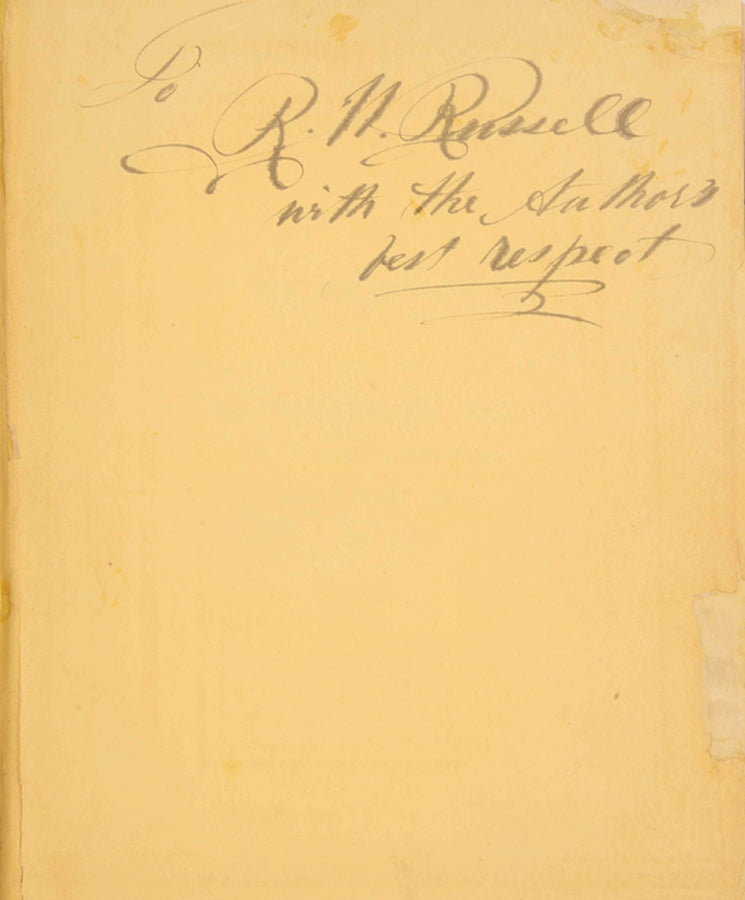 To
R. H. Russell
with the Authors
best respect